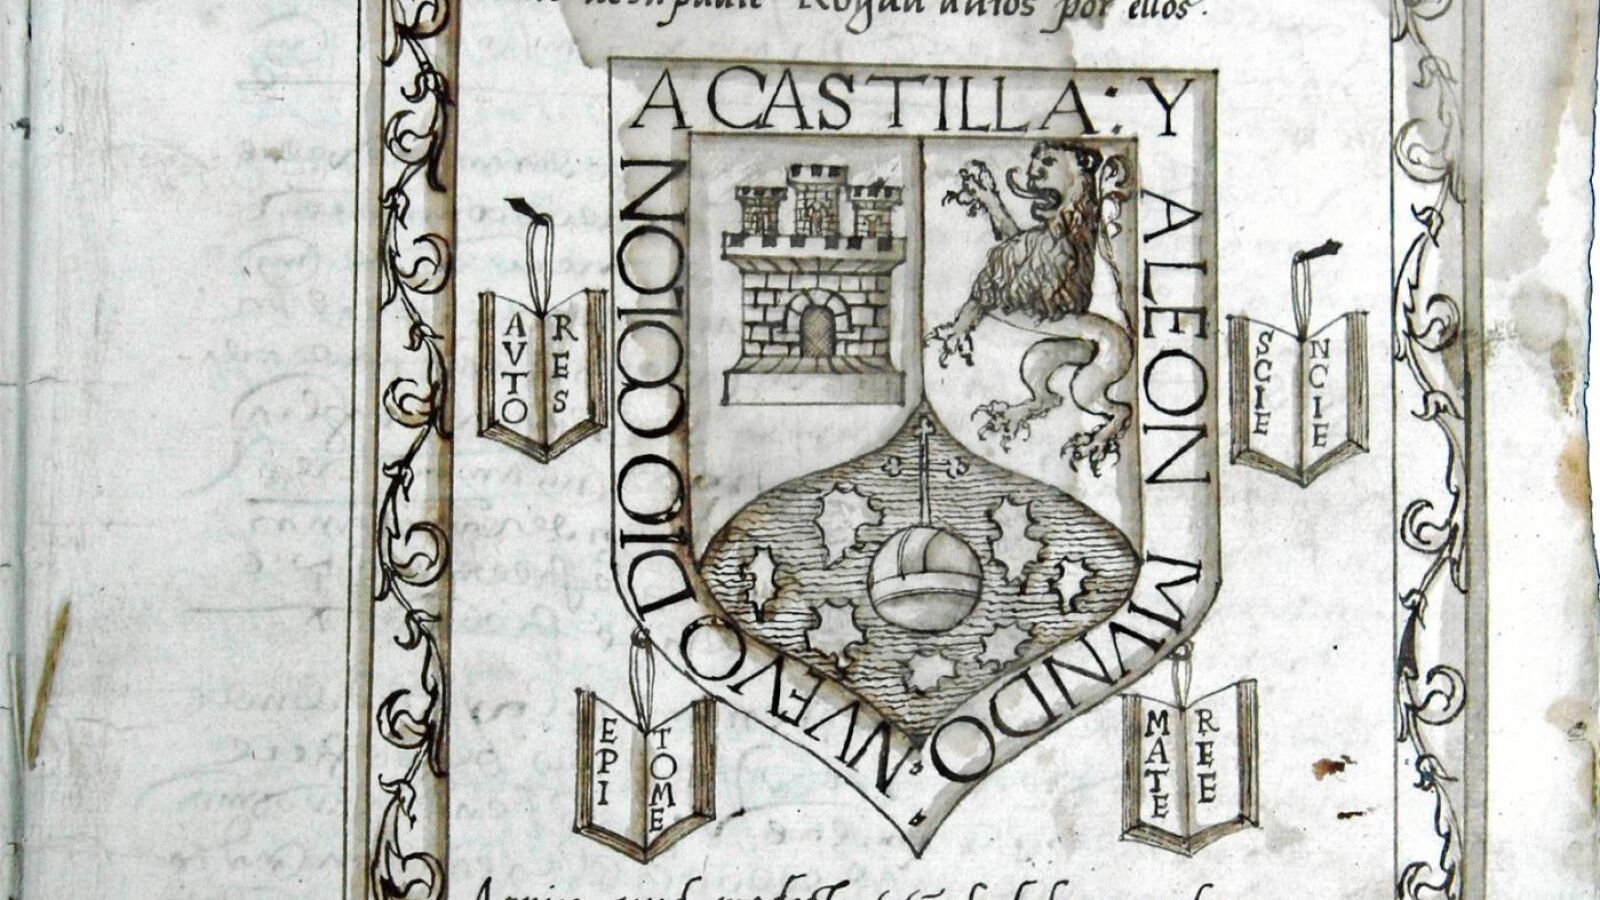 Rogad a dios por ellos.
A CASTILLA: Y
A LEON
MVNDO
NVEVO
DIO
COLON
AVTO
RES
SCIE
NCIE
EPI
TOME
MATE
REE